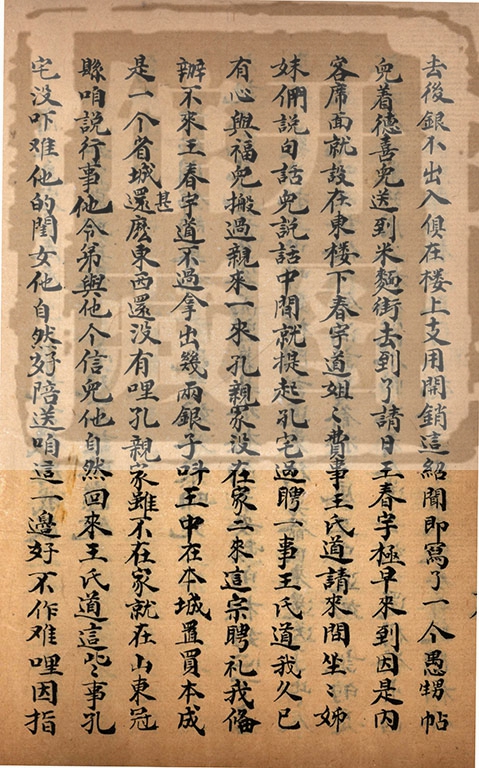 去後銀不出入俱在楼上支用開銷這紹聞即寫了一个愚甥帖
兒着德喜兒送到米麵街去到了請日王春宇極早來到因是内
客席面就設在東楼下春宇道姐〻費事王氏道請來閒坐〻姊
妹們說句話兒說話中間就提起孔宅過聘一事王氏道我久已
有心與福兒搬過親來一來孔親家没在家二來這宗聘礼我俻
辦不來王春宇道不過拿出幾兩銀子呌王中在本城置買本成
是一个省城還甚麽東西還没有哩孔親家雖不在家就在山東冠
縣咱說行事他令弟與他个信兒他自然回來王氏道這些〻事孔
宅没吓难他的閨女他自然好陪送咱這一邊好不作难哩因指